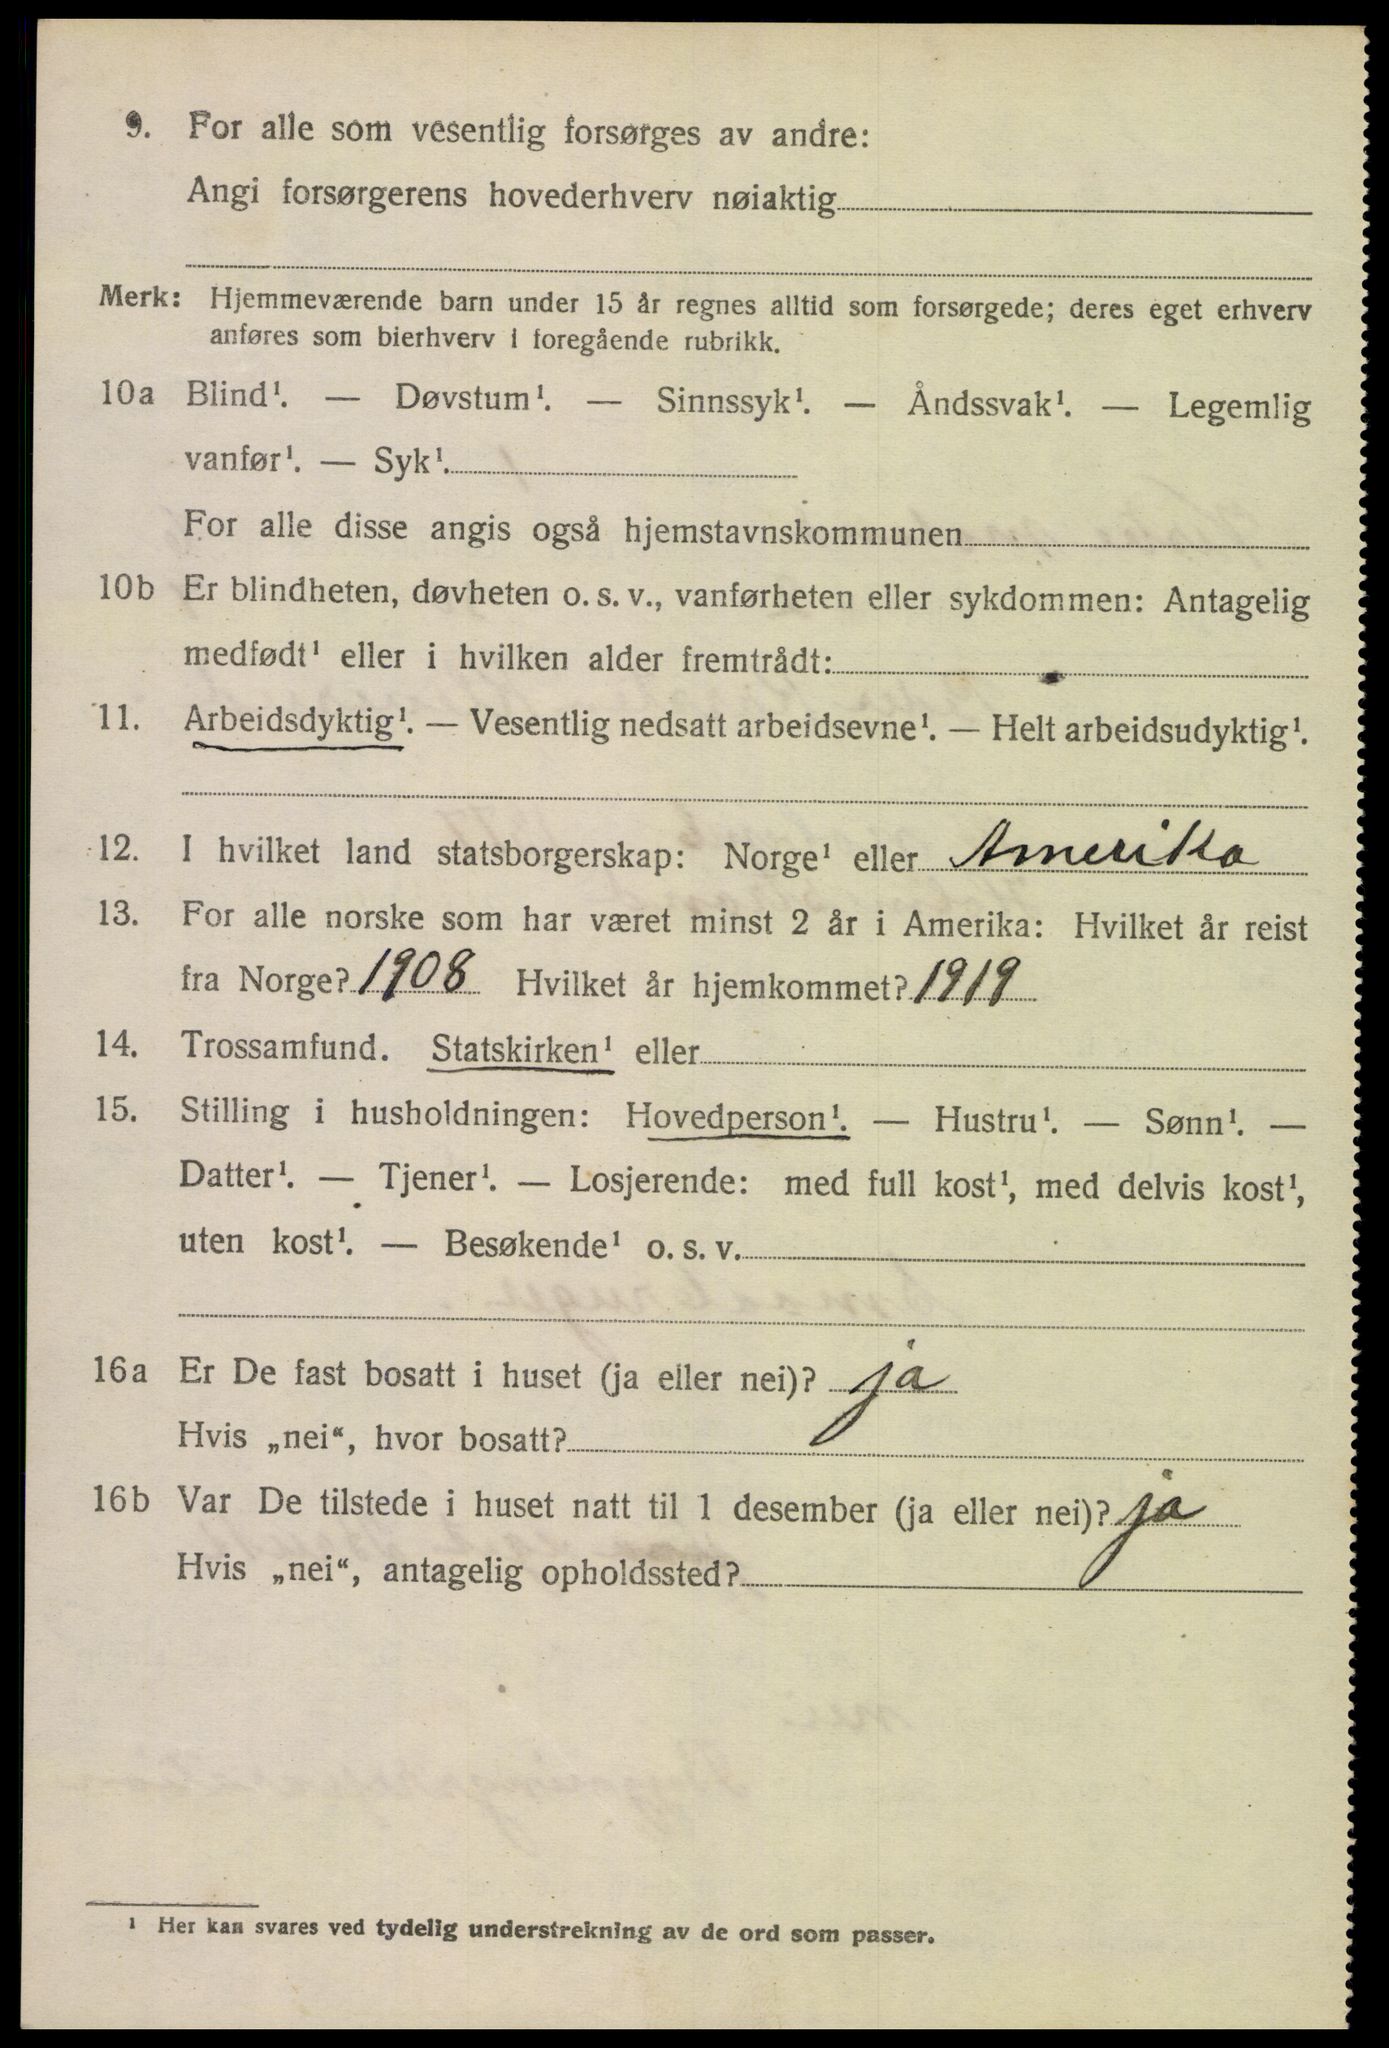 9. For alle som vesentlig forsørges av andre:
Angi forsørgerens hovederhverv nøiaktig
Merk: Hjemmeværende barn under 15 år regnes alltid som forsørgede; deres eget erhverv
anføres som bierhverv i foregående rubrikk.
10a Blind¹. — Døvstum¹. — Sinnssyk¹. — Åndssvak¹. — Legemlig
vanfør¹. — Syk¹.
For alle disse angis også hjemstavnskommunen
10b Er blindheten, døvheten o. s. v., vanførheten eller sykdommen: Antagelig
medfødt¹ eller i hvilken alder fremtrådt:
11. Arbeidsdyktig¹. — Vesentlig nedsatt arbeidsevne¹. — Helt arbeidsudyktig¹.
12. I hvilket land statsborgerskap: Norge¹ eller Amerika
13. For alle norske som har været minst 2 år i Amerika: Hvilket år reist
fra Norge? 1908 Hvilket år hjemkommet? 1919
14. Trossamfund. Statskirken¹ eller
15. Stilling i husholdningen: Hovedperson¹. — Hustru¹. — Sønn¹. —
Datter¹. — Tjener¹. — Losjerende: med full kost¹, med delvis kost¹,
uten kost¹. — Besøkende¹ o. s. v.
16a Er De fast bosatt i huset (ja eller nei)? ja
Hvis „nei“, hvor bosatt?
16b Var De tilstede i huset natt til 1 desember (ja eller nei)? ja
Hvis „nei“, antagelig opholdssted?
¹ Her kan svares ved tydelig understrekning av de ord som passer.